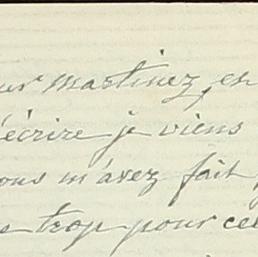 martinez, en
écrire je viens
vous m'avez fait
trop pour cel